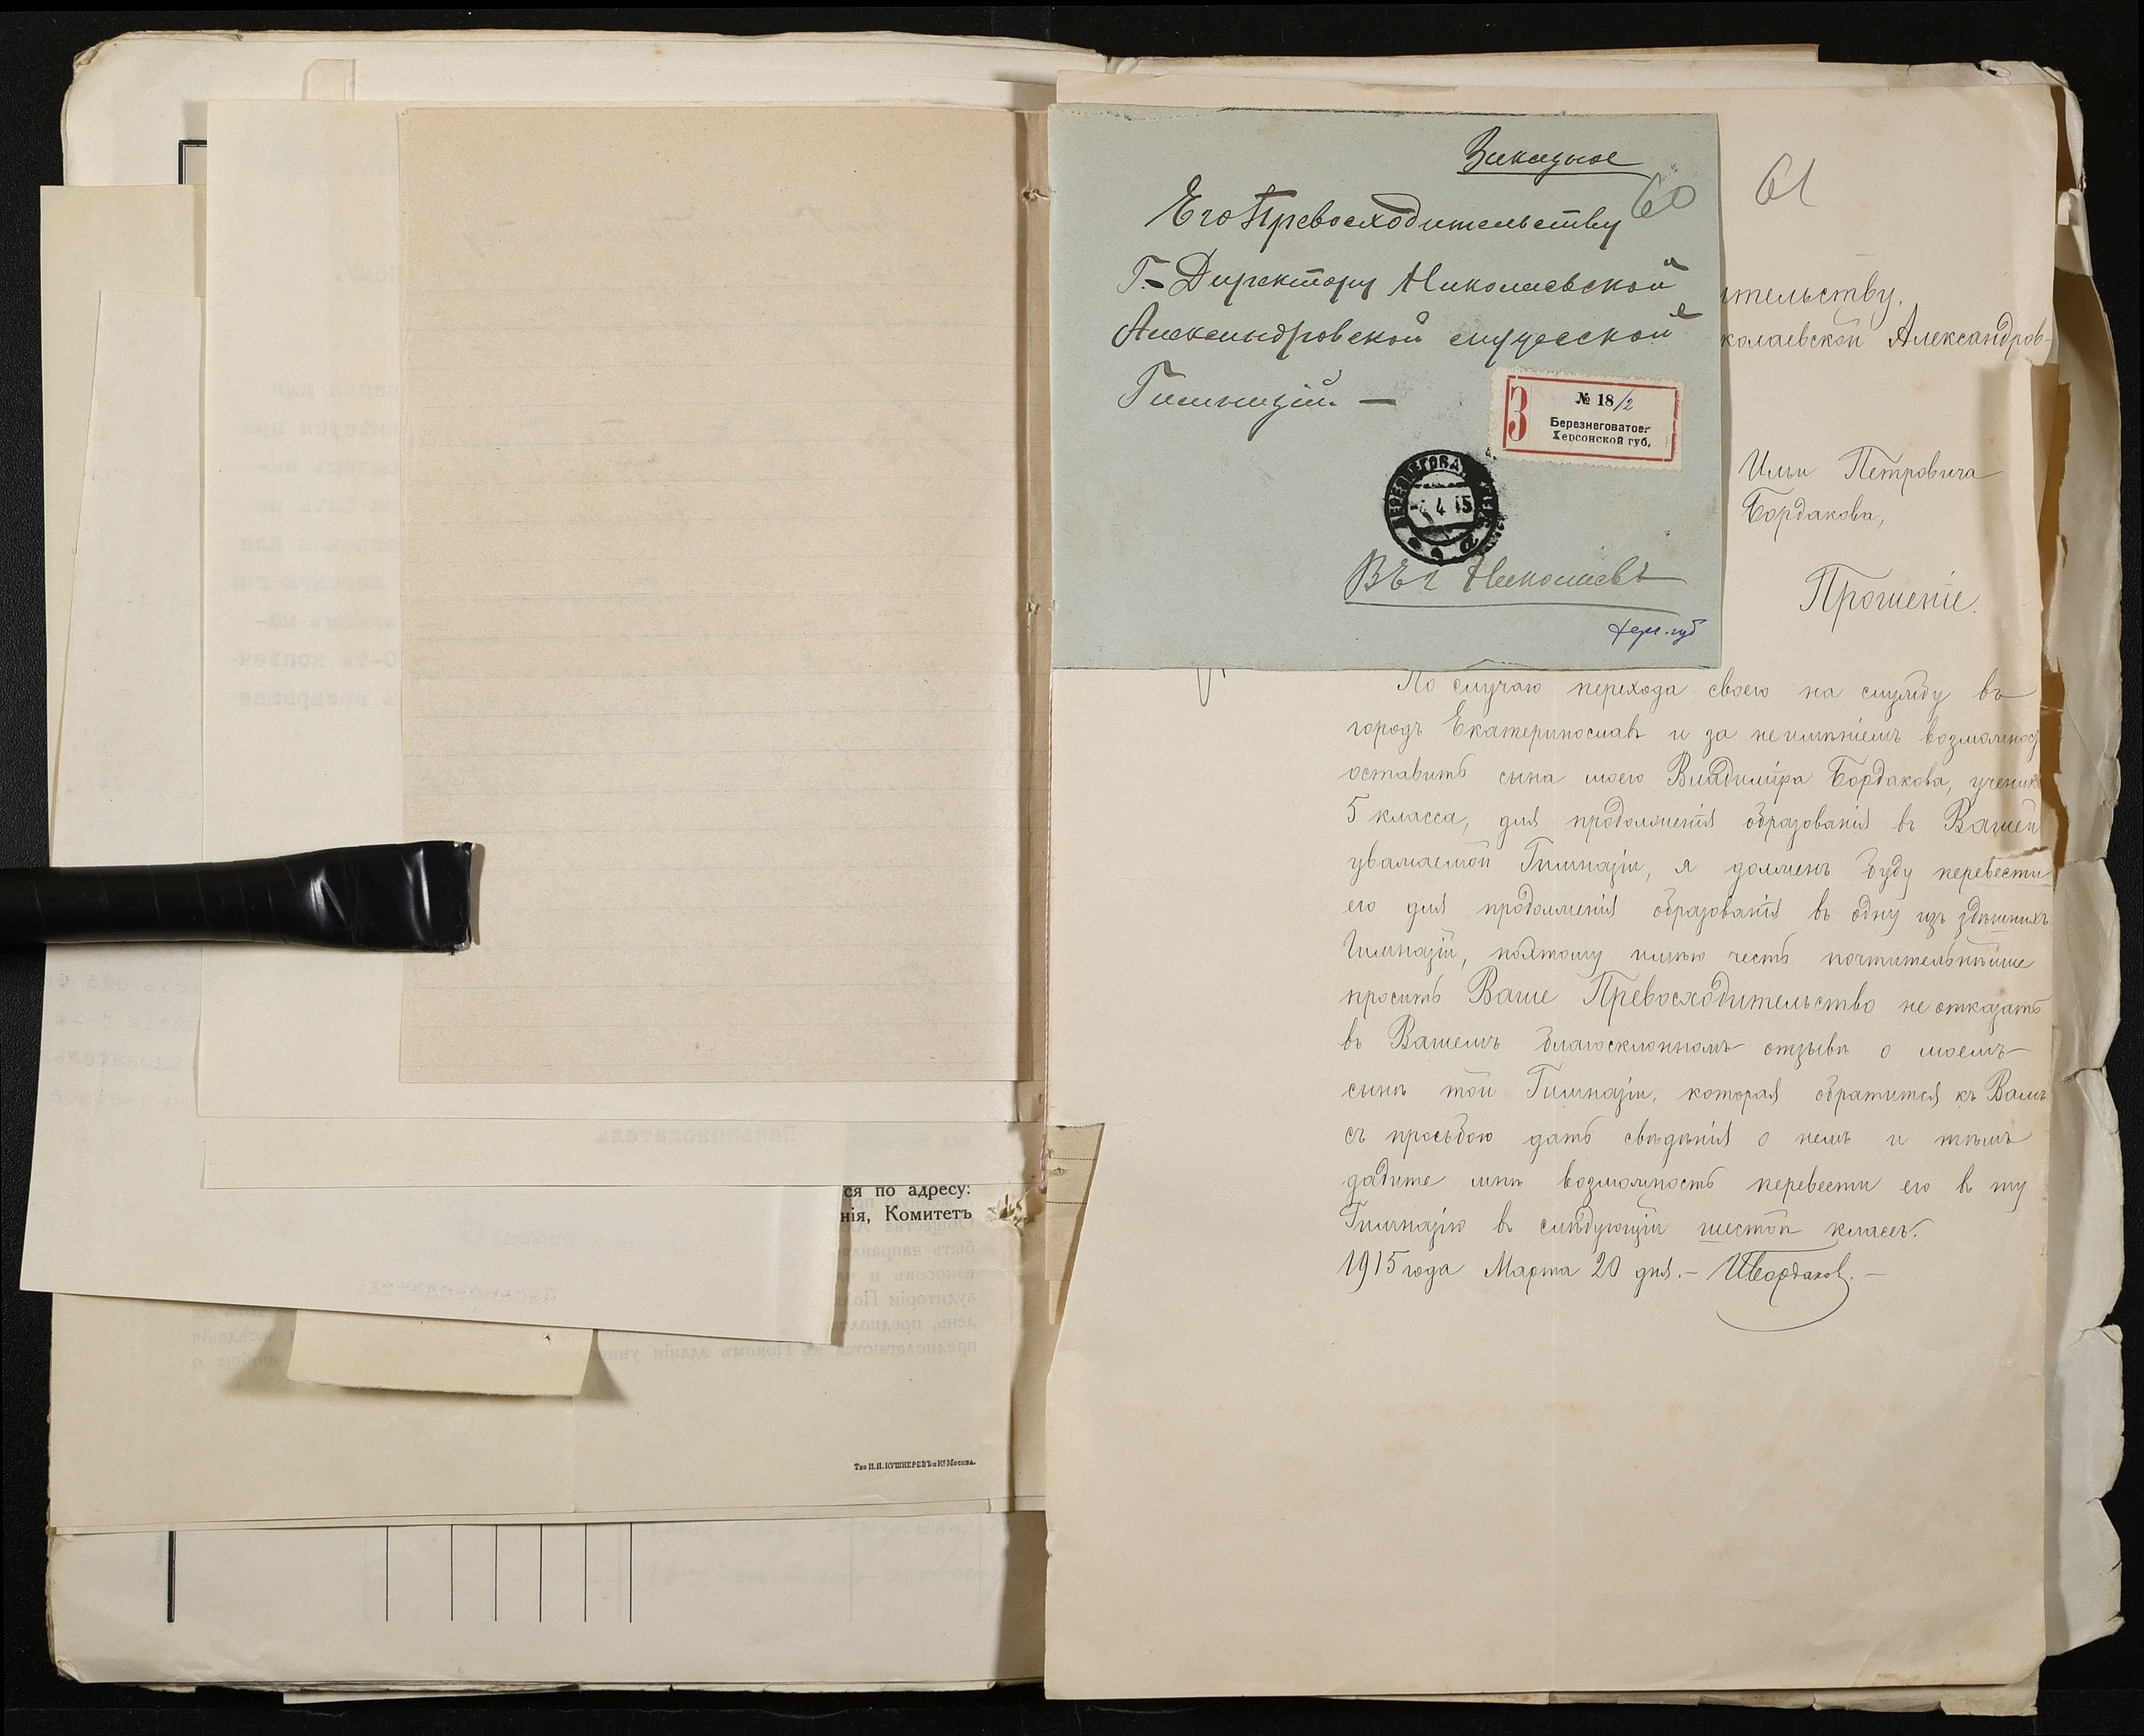 Заказное
60
Его Превосходительству
Г. Директору Николаевской
Александровской мужской
Гимназіи. —
З
№ 18/2
Березнеговатое.
Херсонской губ.
4 15
Въ г Николаевъ
Херс. губ
61
ительству,
колаевской Александров-
Ильи Петровича
Бордакова,
Прошеніе.
По случаю перехода своего на службу въ
городъ Екатеринославъ и за неимѣніемъ возможнос
оставить сына моего Владиміра Бордакова, ученик
5 класса, для продолженія образованія въ Вашей
уважаемой Гимназіи, я долженъ буду перевести
его для продолженія образованія въ одну изъ здѣшнихъ
Гимназій, поэтому имѣю честь почтительнѣйше
просить Ваше Превосходительство не отказать
въ Вашемъ благосклонномъ отзывѣ о моемъ
сынѣ той Гимназіи, которая обратится къ Вамъ
съ просьбою дать свѣдѣнія о немъ и тѣмъ
дадите мнѣ возможность перевести его въ ту
Гимназію въ слѣдующій шестой классъ.
1915 года Марта 20 дня. — ИБордаковъ. —
ся по адресу:
нія, Комитетъ
Т-во И. Н. КУШНЕРЕВЪ и К° Москва.